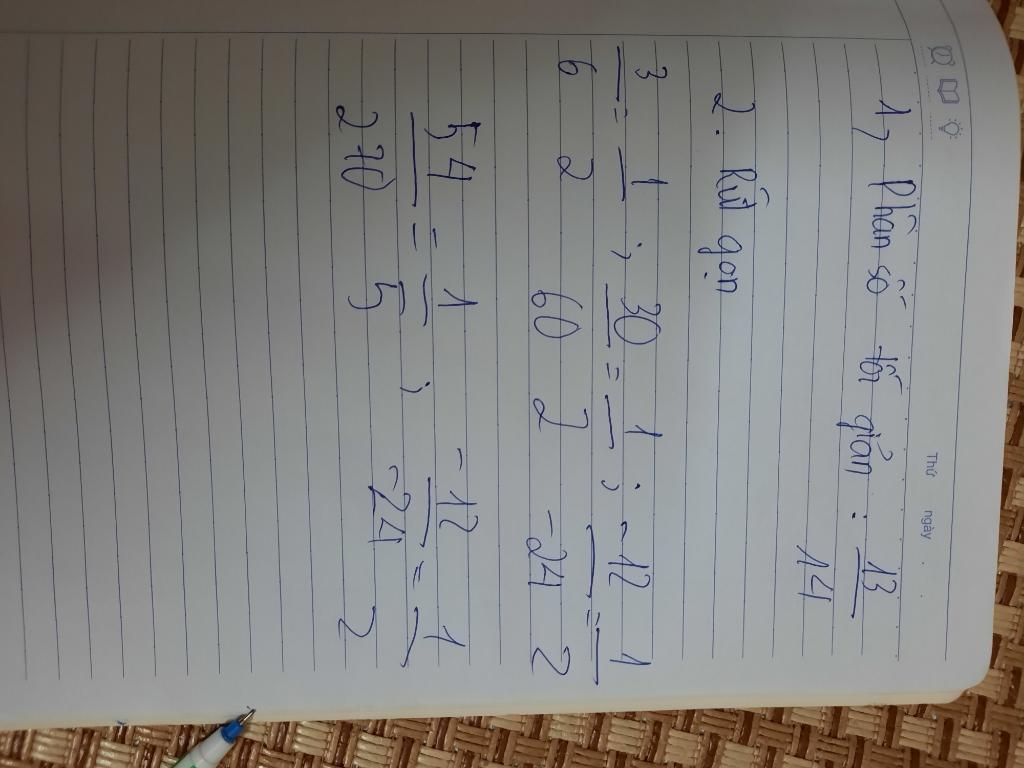 Thứ ngày
1, Phân số tối giản : 13/14
2. Rút gọn
3/6 = 1/2 ; 30/60 = 1/2 ; -12/-24 = 1/2
54/270 = 1/5 ; -12/-24 = 1/2